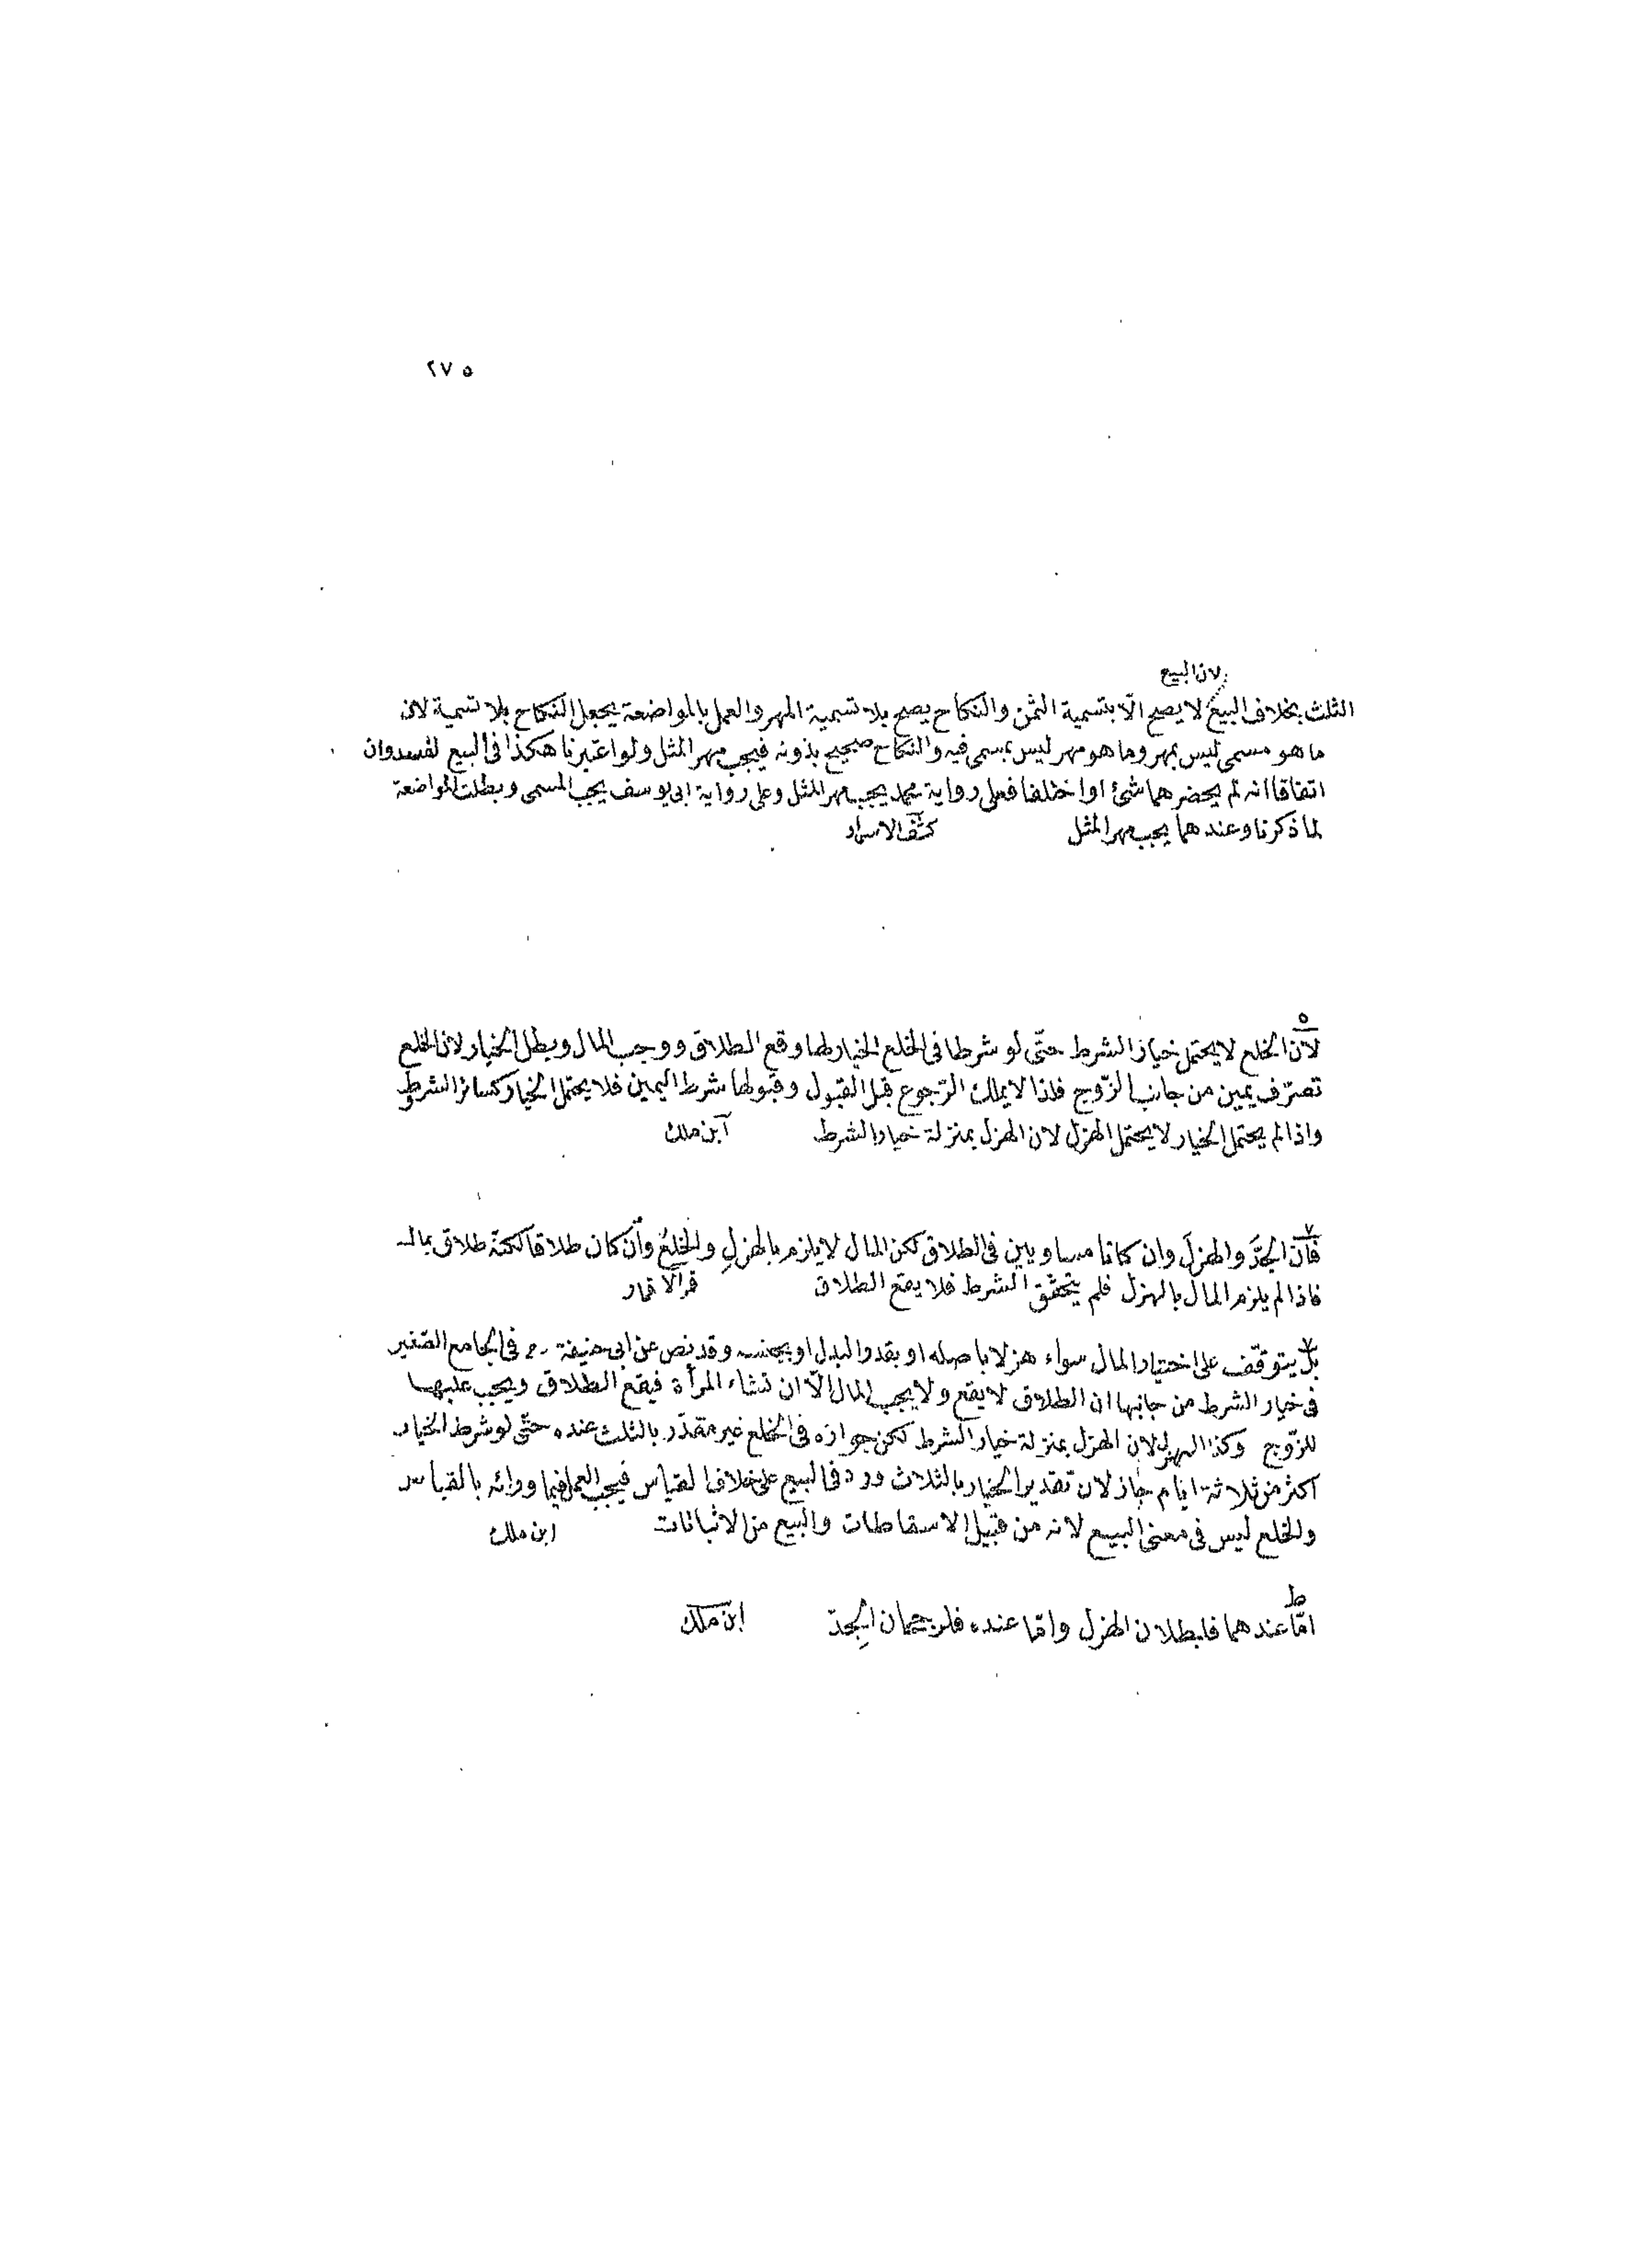 ٢٧٥
لان البيع
الثلث بخلاف البيع لا يصح الّا بتسمية الثمن والنكاح يصح بلا تسمية المهر والعمل بالمواضعة يجعل النكاح بلا تسمية لان
ما هو مسمى ليس بمهر وما هو مهر ليس بمسمى فيه والنكاح صحيح بدونه فيجب مهر المثل ولو اعتبرنا هكذا فى البيع لفسد وان
اتفاقا انه لم يحضرهما شئ او اختلفا فعلى رواية محمد يجب مهر المثل وعلى رواية ابى يوسف يجب المسمى وبطلت المواضعة
لما ذكرنا وعندهما يجب مهر المثل كشف الاسرار
٥
لانّ الخلع لا يحتمل خيار الشرط حتّى لو شرطا فى الخلع الخيار لها وقع الطلاق ووجب المال وبطل الخيار لان الخلع
تصرّف يمين من جانب الزّوج فلذا لا يملك الرّجوع قبل القبول وقبولها شرط اليمين فلا يحتمل الخيار كسائر الشروط
واذا لم يحتمل الخيار لا يحتمل الهزل لان الهزل بمنزلة خيار الشرط ابن ملك
٧
فانّ الجدّ والهزلَ وان كانا مساويين فى الطلاق لكن المال لا يلزم بالهزلِ والخلعُ وان كان طلاقا لكنّه طلاق بمال
فاذا لم يلزم المال بالهزل فلم يتحقق الشرط فلا يقع الطلاق قمر الاقمار
بل يتوقّف على اختيار المال سواء هزلا باصله او بقدر البدل او بجنسه وقد نص عن ابى حنيفة رح فى الجامع الصّغير
فى خيار الشرط من جانبها ان الطلاق لا يقع ولا يجب المال الّا ان تشاء المرأة فيقع الطلاق ويجب عليها
للزّوج وكذا الهزل لان الهزل بمنزلة خيار الشرط لكن جوازه فى الخلع غير مقدّر بالثلث عنده حتّى لو شرط الخيار
اكثر من ثلاثة ايام جاز لان تقدير الخيار بالثلاث ورد فى البيع على خلاف القياس فيجب العمل فيما ورائه بالقياس
والخلع ليس فى معنى البيع لانه من قبيل الاسقاطات والبيع من الاثباتات ابن ملك
ط
امّا عندهما فلبطلان الهزل وامّا عنده فلرجحان الجِدّ ابن ملك